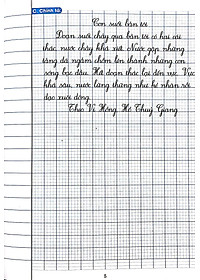 C. Chính tả:
Con suối bản tôi
Đoạn suối chảy qua bản tôi có hai cái
thác nước chảy khá xiết. Nước gặp những
tảng đá ngầm chồm lên thành những con
sóng bạc đầu. Hết đoạn thác lại đến vực. Vực
khá sâu, nước lững thững như kẻ nhàn rỗi
dạo xuôi dòng.
Theo Vi Hồng, Hồ Thuỷ Giang
5